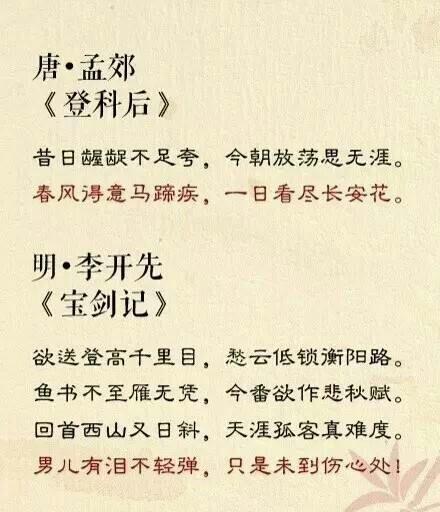 唐·孟郊
《登科后》
昔日龌龊不足夸，今朝放荡思无涯。
春风得意马蹄疾，一日看尽长安花。
明·李开先
《宝剑记》
欲送登高千里目，愁云低锁衡阳路。
鱼书不至雁无凭，今番欲作悲秋赋。
回首西山又日斜，天涯孤客真难度。
男儿有泪不轻弹，只是未到伤心处！